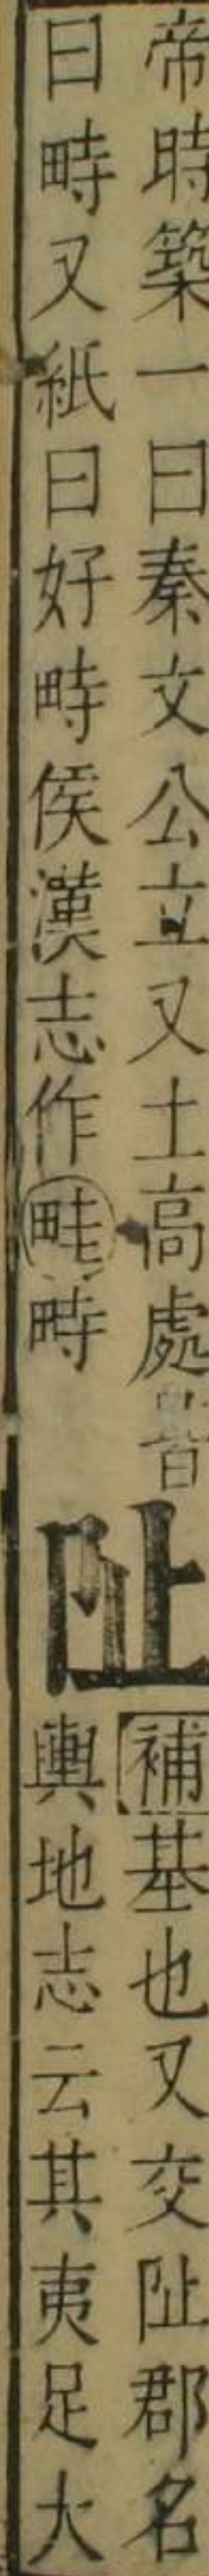 帝時築一曰秦文公立又土高處皆
曰畤又紙曰好畤侯漢志作畦畤
阯
補基也又交阯郡名
輿地志云其夷足大